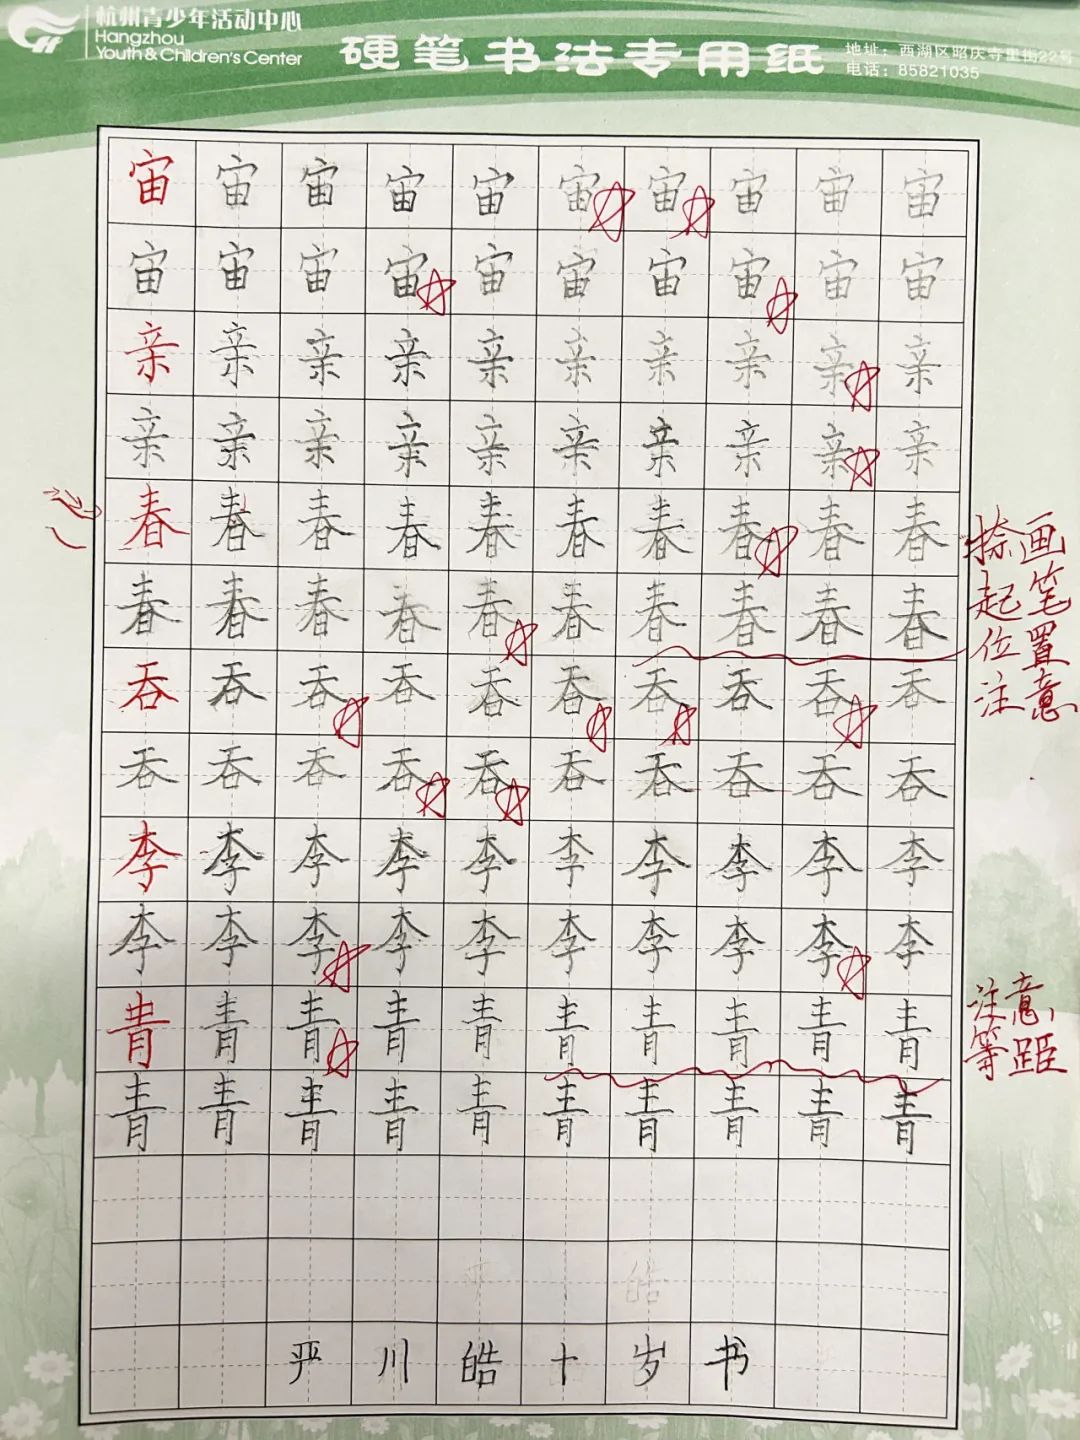 杭州青少年活动中心
Hangzhou
Youth & Children's Center
硬笔书法专用纸
地址：西湖区昭庆寺里街22号
电话：85821035
宙宙宙宙宙宙宙宙宙宙
宙宙宙宙宙宙宙宙宙宙
亲亲亲亲亲亲亲亲亲亲
亲亲亲亲亲亲亲亲亲亲
春春春春春春春春春春
春春春春春春春春春春
吞吞吞吞吞吞吞吞吞吞
吞吞吞吞吞吞吞吞吞吞
李李李李李李李李李李
李李李李李李李李李李
青青青青青青青青青青
青青青青青青青青青青
捺画
起笔
位置
注意
注意
等距
皓
严川皓十岁书